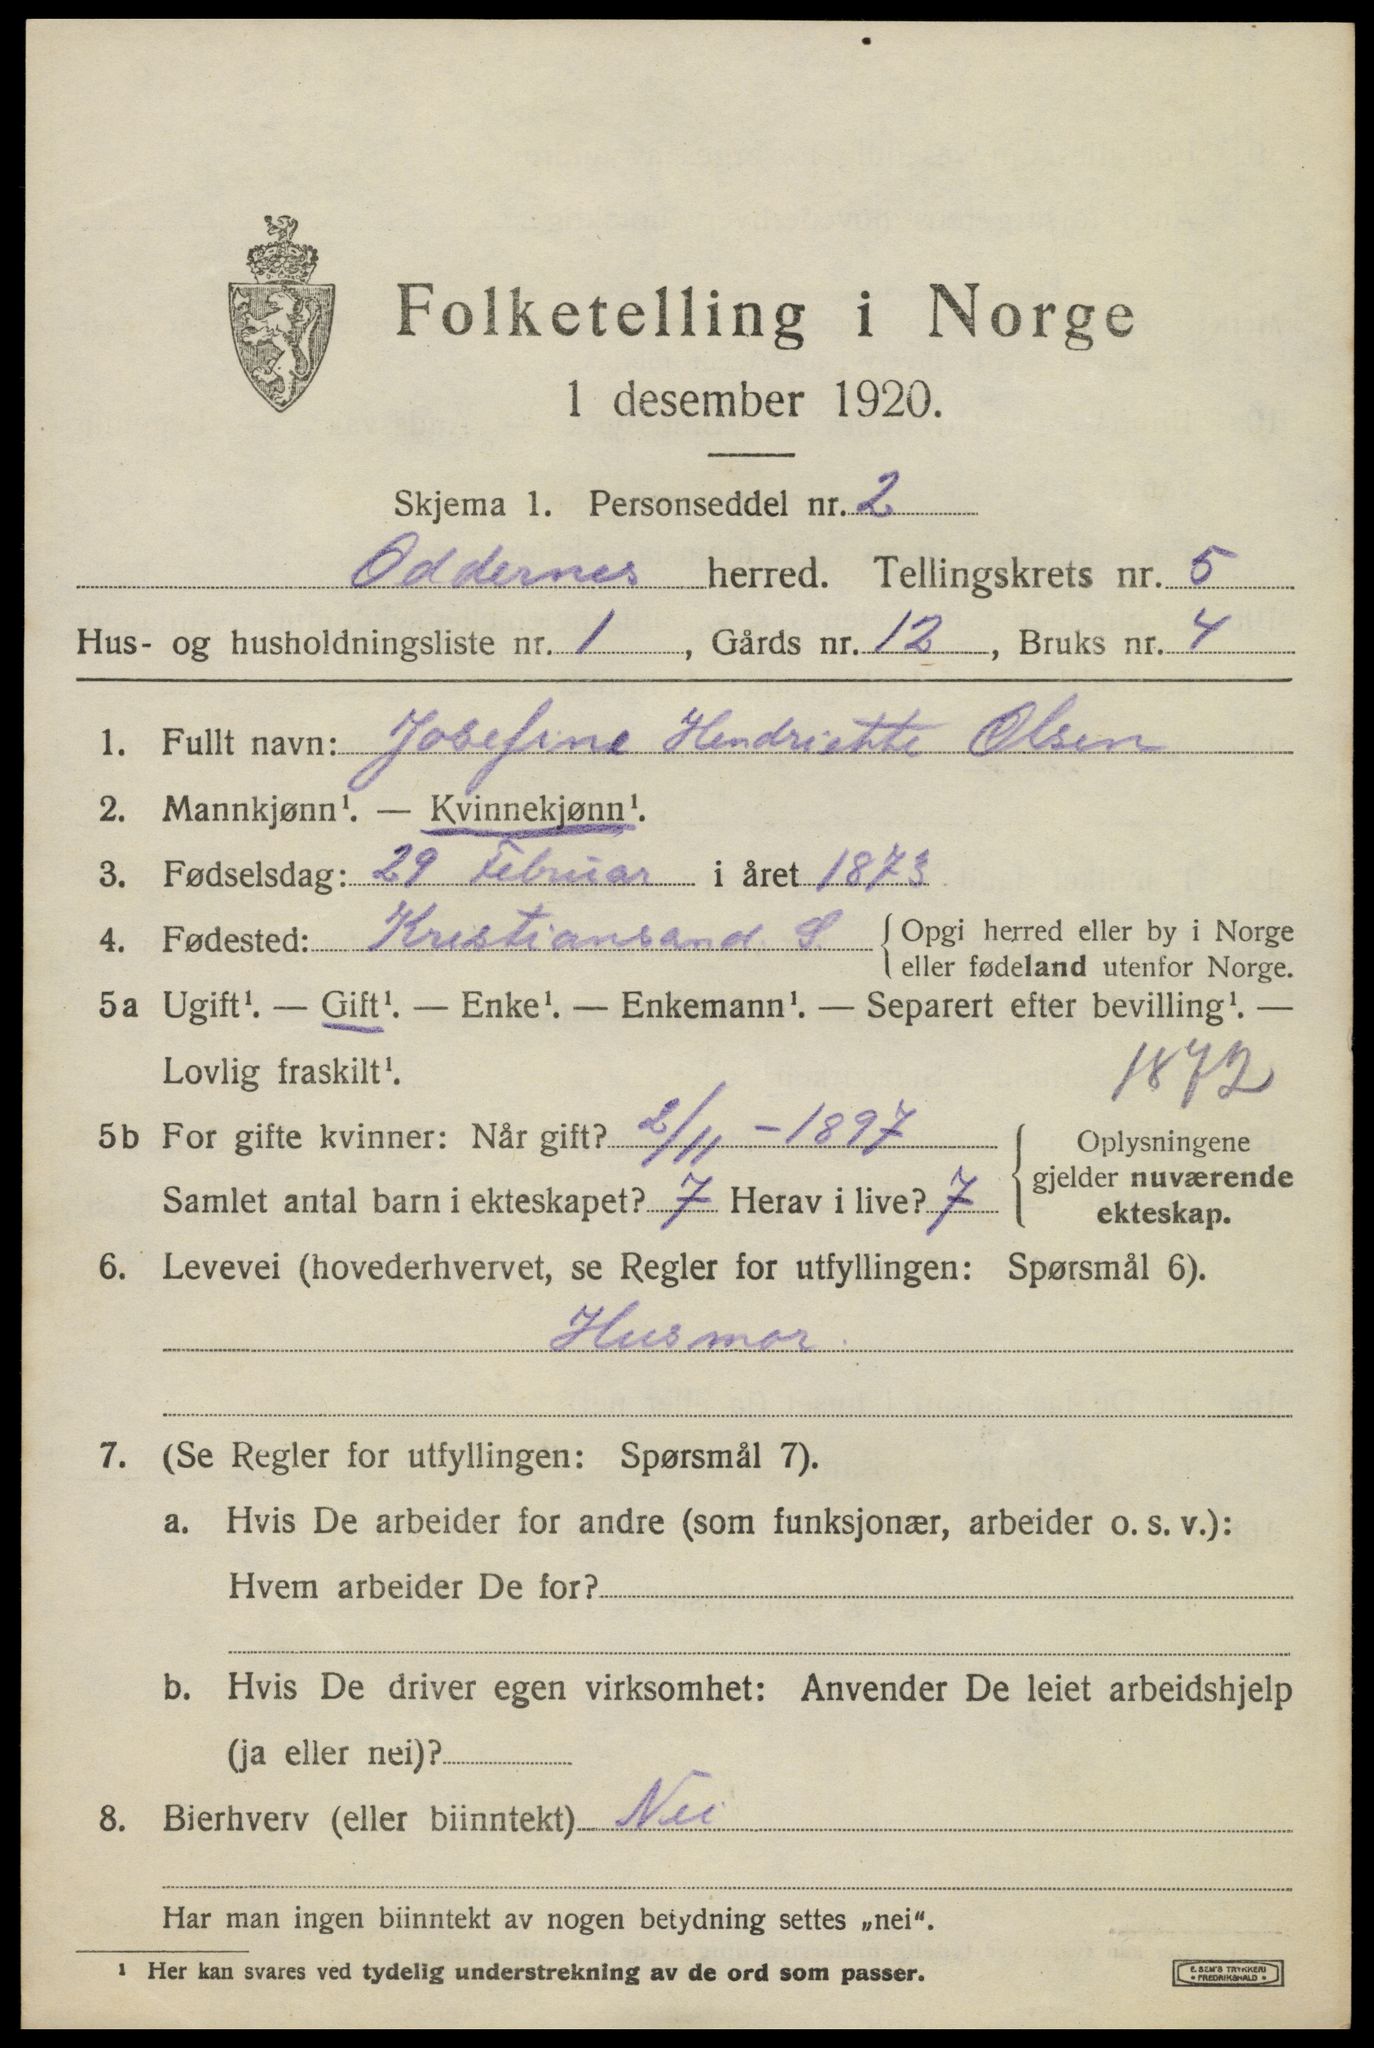 Folketelling i Norge
1 desember 1920.
Skjema 1. Personseddel nr. 2
Oddernes herred. Tellingskrets nr. 5
Hus- og husholdningsliste nr. 1, Gårds nr. 12, Bruks nr. 4
1. Fullt navn: Josefine Hendriette Olsen
2. Mannkjønn¹. — Kvinnekjønn¹.
3. Fødselsdag: 29 Februar i året 1873
4. Fødested: Kristiansand S { Opgi herred eller by i Norge
eller fødeland utenfor Norge.
5a Ugift¹. — Gift¹. — Enke¹. — Enkemann¹. — Separert efter bevilling¹. —
Lovlig fraskilt¹.
1872
5b For gifte kvinner: Når gift? 2/11 – 1897
Samlet antal barn i ekteskapet? 7 Herav i live? 7
{ Oplysningene
gjelder nuværende
ekteskap.
6. Levevei (hovederhvervet, se Regler for utfyllingen: Spørsmål 6).
Husmor.
7. (Se Regler for utfyllingen: Spørsmål 7).
a. Hvis De arbeider for andre (som funksjonær, arbeider o. s. v.):
Hvem arbeider De for?
b. Hvis De driver egen virksomhet: Anvender De leiet arbeidshjelp
(ja eller nei)?
8. Bierhverv (eller biinntekt) Nei
Har man ingen biinntekt av nogen betydning settes „nei“.
¹ Her kan svares ved tydelig understrekning av de ord som passer.
E. SEM'S TRYKKERI
• FREDRIKSHALD •